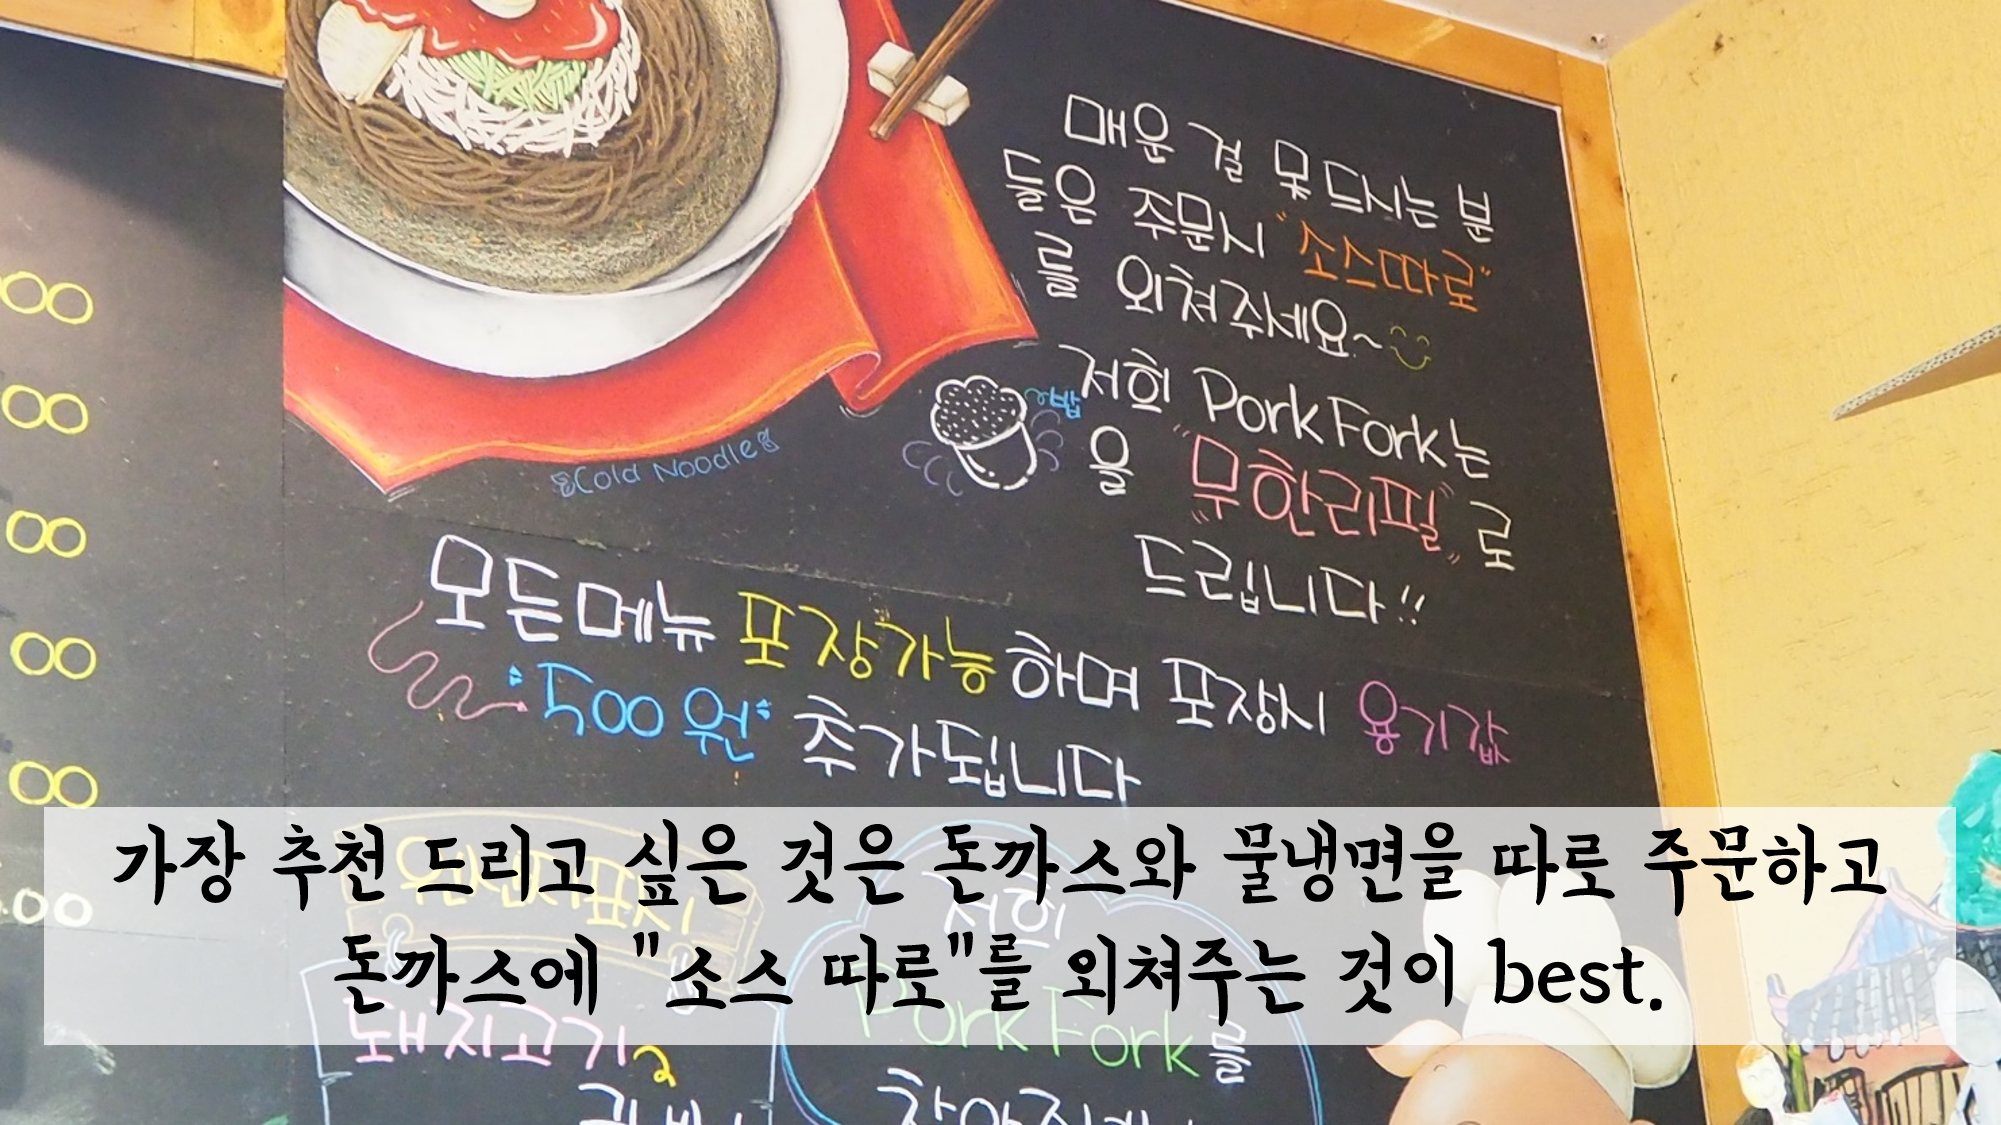 매운 걸 못 드시는 분
들은 주문시 "소스따로"
를 외쳐주세요~
저희 Pork Fork는
~밥
을 "무한리필"로
드립니다!!
Cold Noodle
모든메뉴 포장가능하며 포장시 용기값
500원 추가됩니다
00
00
00
00
00
.00
가장 추천 드리고 싶은 것은 돈까스와 물냉면을 따로 주문하고
돈까스에 "소스 따로"를 외쳐주는 것이 best.
원산지표시
저희
돼지고기
Pork Fork를